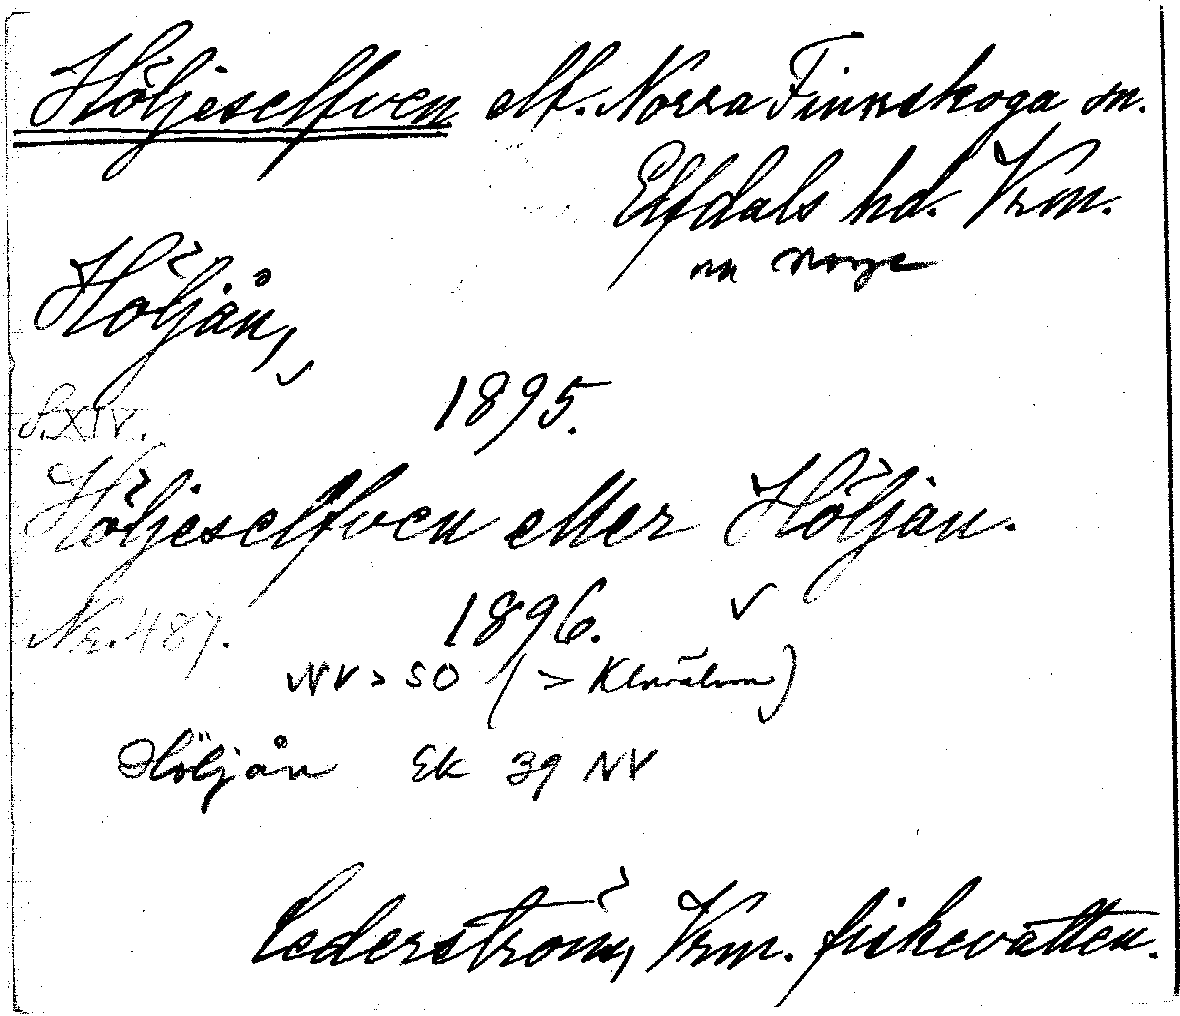 Höljeselfven elf. Norra Finnskoga sn.
Elfdals hd. Vrm.
nu Norge
Höljån,
1895.
S. XIV.
Höljeselfven eller Höljån.
1896.
Nr. 487.
NV > SO (> Klarälven)
Höljån Ek 39 NV
Cederström, Vrm. fiskevatten.